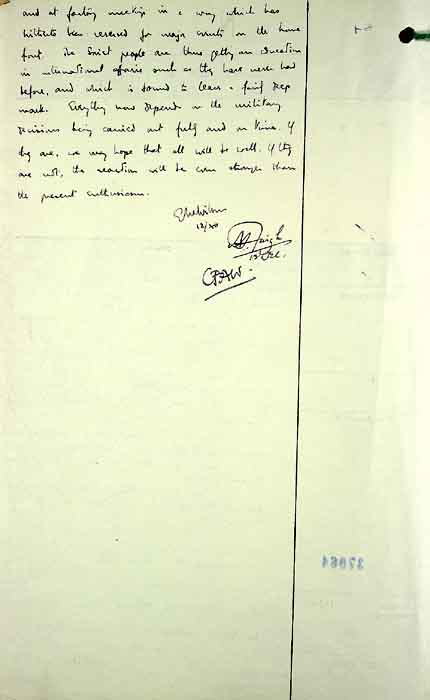 and at factory meetings in a way which has
hitherto been reserved for major events on the home
front. The Soviet people are thus getting an education
in international affairs such as they have never had
before, and which is bound to leave a fairly deep
mark. Everything now depends on the military
decisions being carried out fully and on time. If
they are, we may hope that all will be well. If they
are not, the reaction will be even stronger than
the present enthusiasm.
12/xii
12 Dec.
37064